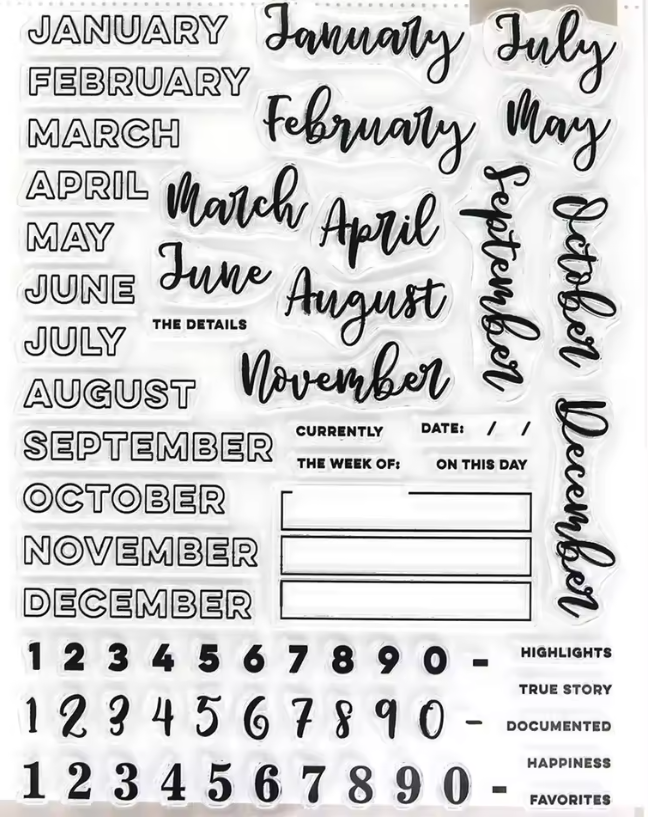 JANUARY
FEBRUARY
MARCH
APRIL
MAY
JUNE
JULY
AUGUST
SEPTEMBER
OCTOBER
NOVEMBER
DECEMBER
January
July
February
May
March
April
September
October
June
August
THE DETAILS
November
December
CURRENTLY
DATE: / /
THE WEEK OF:
ON THIS DAY
1 2 3 4 5 6 7 8 9 0 -
1 2 3 4 5 6 7 8 9 0 -
1 2 3 4 5 6 7 8 9 0 -
HIGHLIGHTS
TRUE STORY
DOCUMENTED
HAPPINESS
FAVORITES